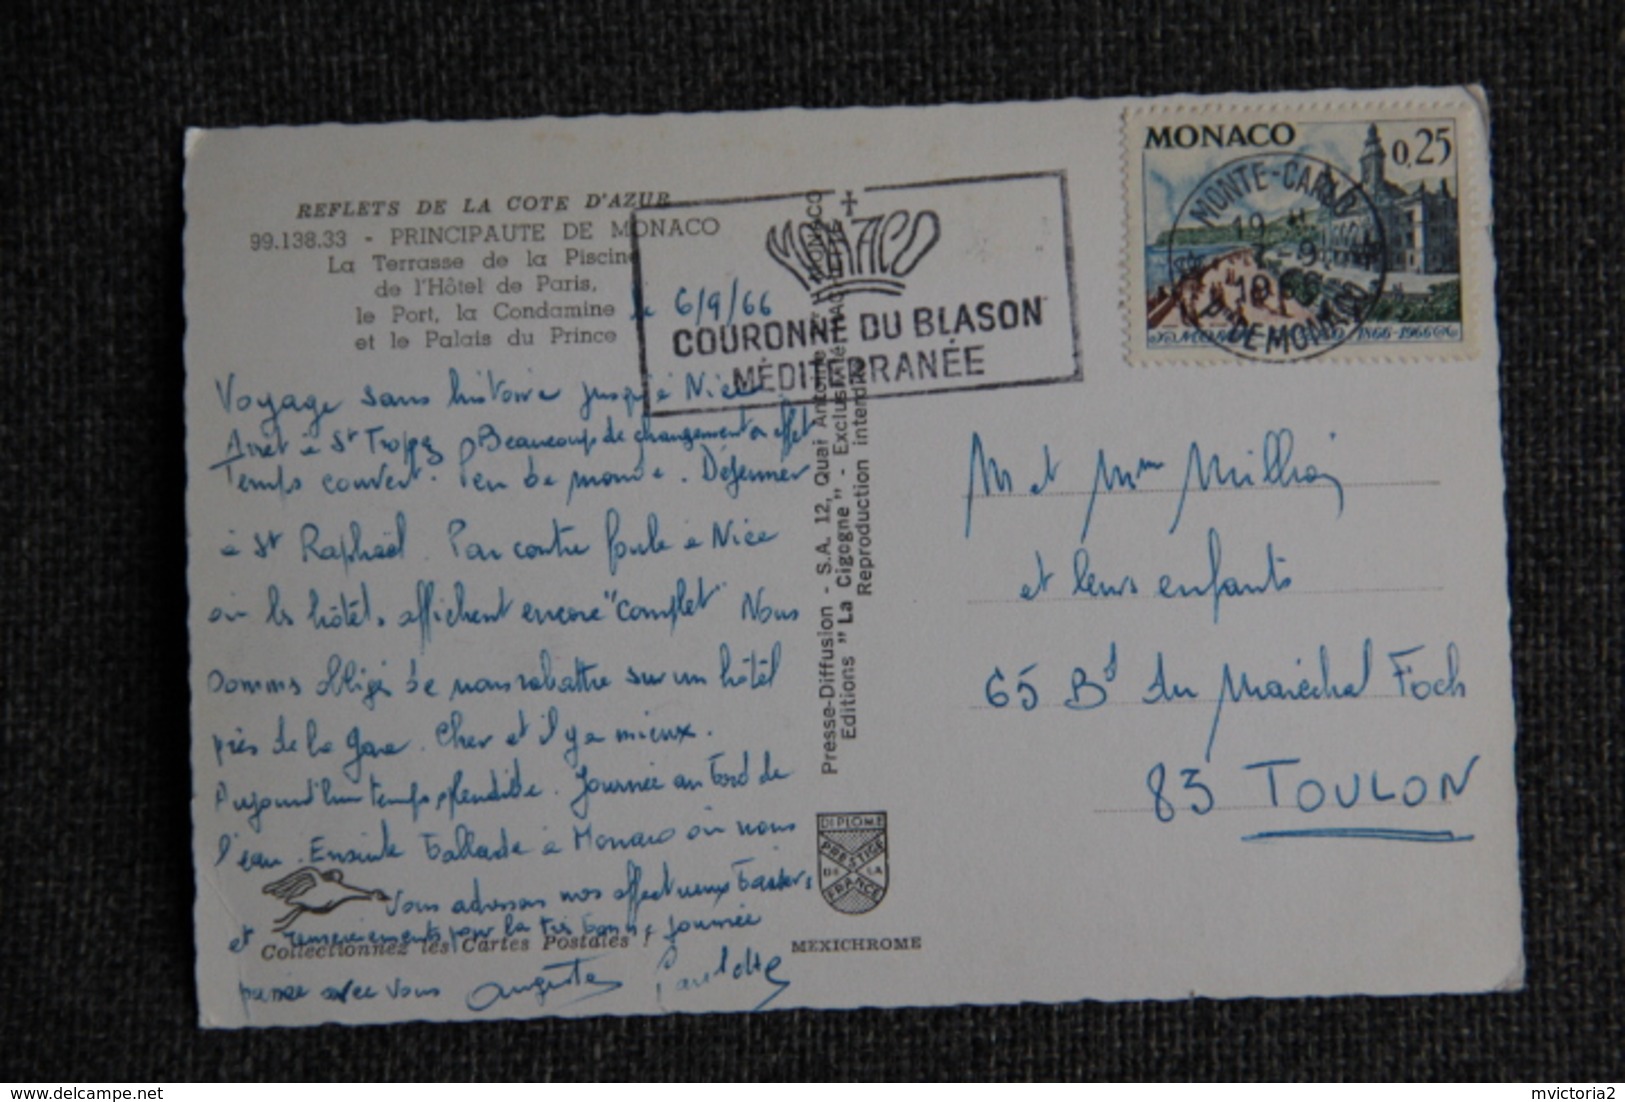 REFLETS DE LA COTE D'AZUR
99.138.33 - PRINCIPAUTE DE MONACO
La Terrasse de la Piscine
de l'Hôtel de Paris,
le Port, la Condamine
et le Palais du Prince
le 6/9/66
Voyage sans histoire jusqu'à Nice
Arrêt à St Tropez Beaucoup de changement en effet
Temps couvert. Peu de monde. Déjeuner
à St Raphaël. Par contre foule à Nice
où les hôtels affichent encore "complet" Nous
sommes obligés de nous rabattre sur un hôtel
près de la gare. Cher et il y a mieux.
Aujourd'hui temps splendide. Journée au bord de
l'eau. Ensuite ballade à Monaco où nous
vous adressons nos affectueux baisers
et remerciements pour la très bonne journée
passée avec vous Auguste Paulette
Collectionnez les Cartes Postales !
MONACO
COURONNE DU BLASON
MÉDITERRANÉE
Presse-Diffusion - S.A. 12, Quai Antoine 1er MONACO
Editions "La Cigogne" - Exclusivité HACHETTE
Reproduction interdite
DIPLOME
PRESTIGE
DE LA
FRANCE
MEXICHROME
MONACO 0,25
MONTE-CARLO
19 H
7-9
1966
PTé DE MONACO
1866-1966
M et Mme
et leurs enfants
65 Bd du Maréchal Foch
83 TOULON
mvictoria2